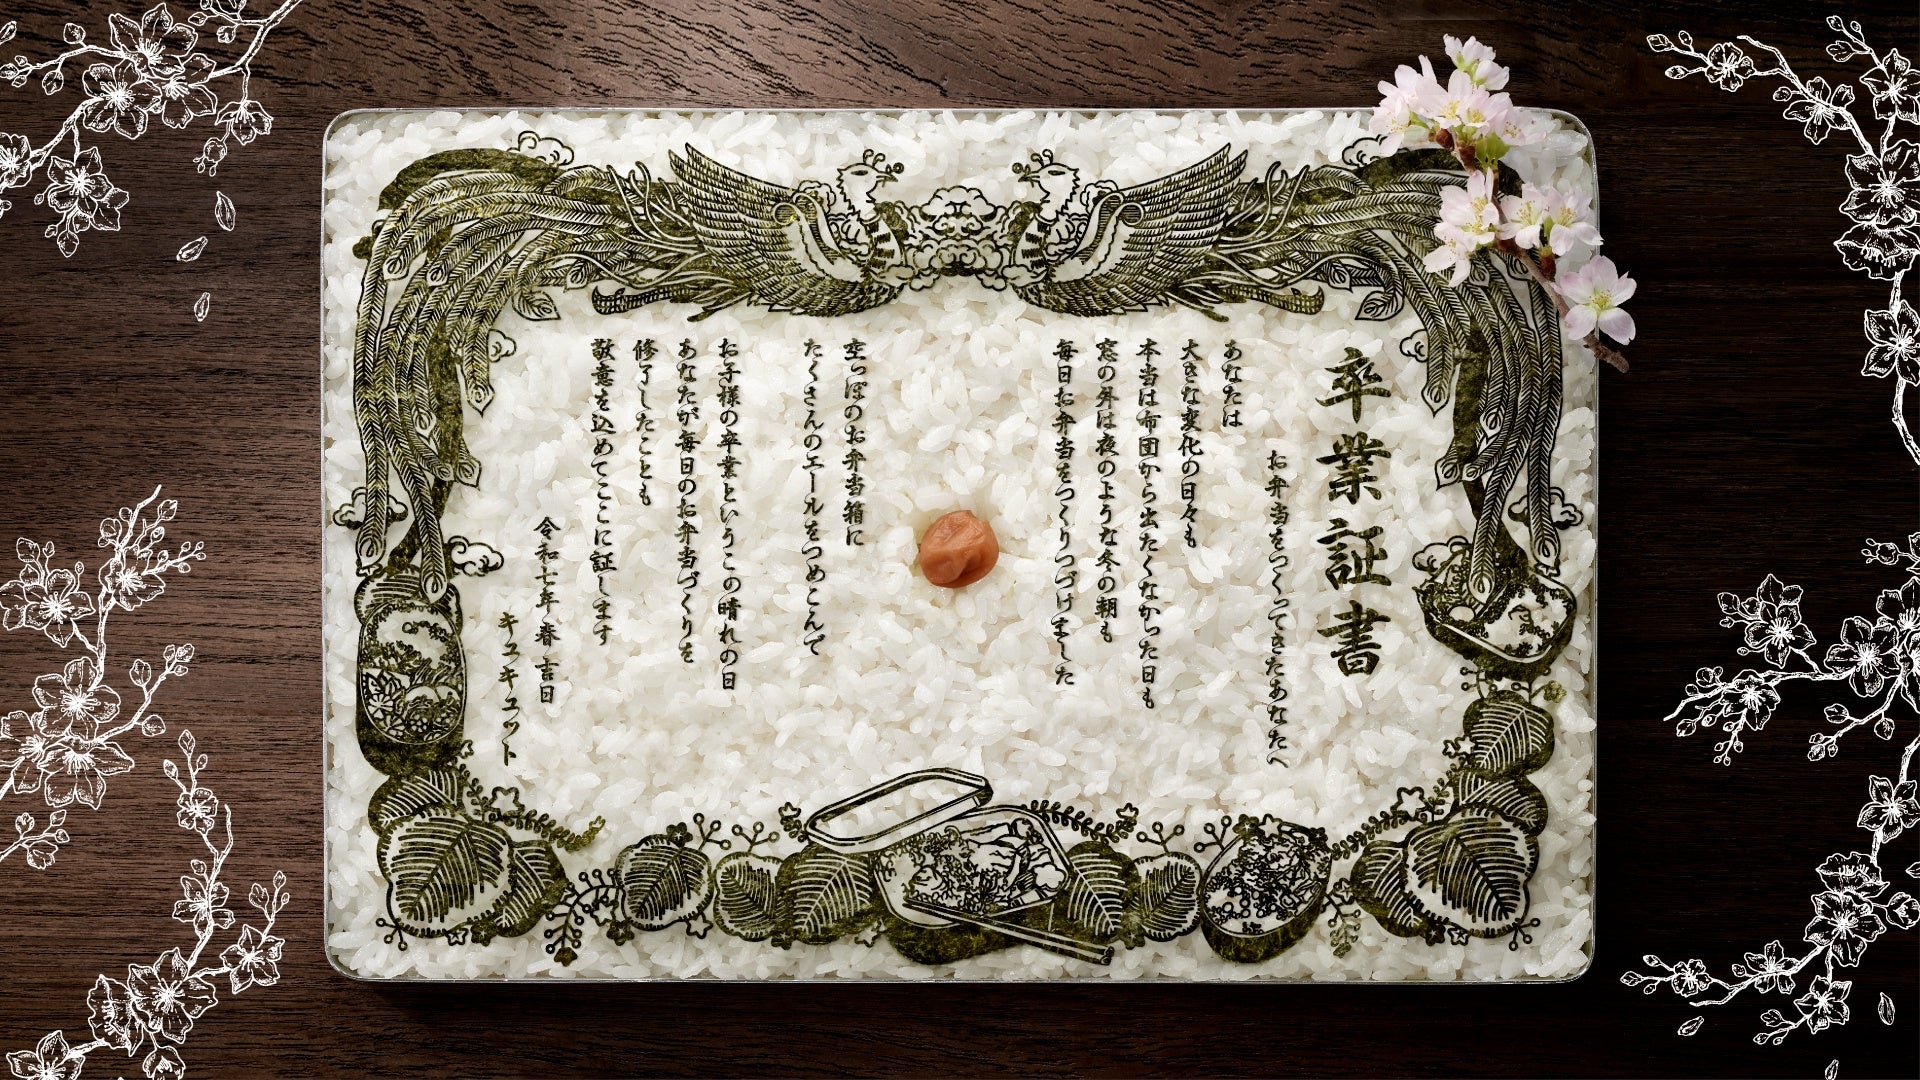 卒業証書
お弁当をつくってきたあなたへ
あなたは
大きな変化の日々も
本当は布団から出たくなかった日も
窓の外は夜のような冬の朝も
毎日お弁当をつくりつづけました
空っぽのお弁当箱に
たくさんのエールをつめこんで
お子様の卒業というこの晴れの日
あなたが毎日のお弁当づくりを
修了したことも
敬意を込めてここに証します
令和七年春吉日
キュキュット